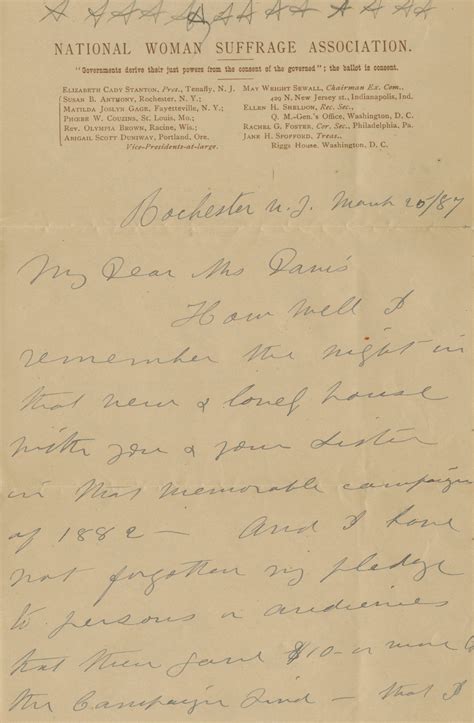 A A A A A A A A A
NATIONAL WOMAN SUFFRAGE ASSOCIATION.
"Governments derive their just powers from the consent of the governed"; the ballot is consent.
ELIZABETH CADY STANTON, Pres., Tenafly, N. J.
SUSAN B. ANTHONY, Rochester, N. Y.;
MATILDA JOSLYN GAGE, Fayetteville, N. Y.;
PHŒBE W. COUZINS, St. Louis, Mo.;
REV. OLYMPIA BROWN, Racine, Wis.;
ABIGAIL SCOTT DUNIWAY, Portland, Ore.
Vice-Presidents-at-large.
MAY WRIGHT SEWALL, Chairman Ex. Com.,
409 N. New Jersey st., Indianapolis, Ind.
ELLEN H. SHELDON, Rec. Sec.,
Q. M.-Gen's Office, Washington, D. C.
RACHEL G. FOSTER, Cor. Sec., Philadelphia, Pa.
JANE H. SPOFFORD, Treas.,
Riggs House, Washington, D. C.
Rochester N. Y. March 20/87
My Dear Mrs Davis
How well I
remember the night in
that new & lovely house
with you & your sister
in that memorable campaign
of 1882 — And I have
not forgotten my pledge
to persons or audiences
that then gave $10- or more to
the Campaign fund — that I